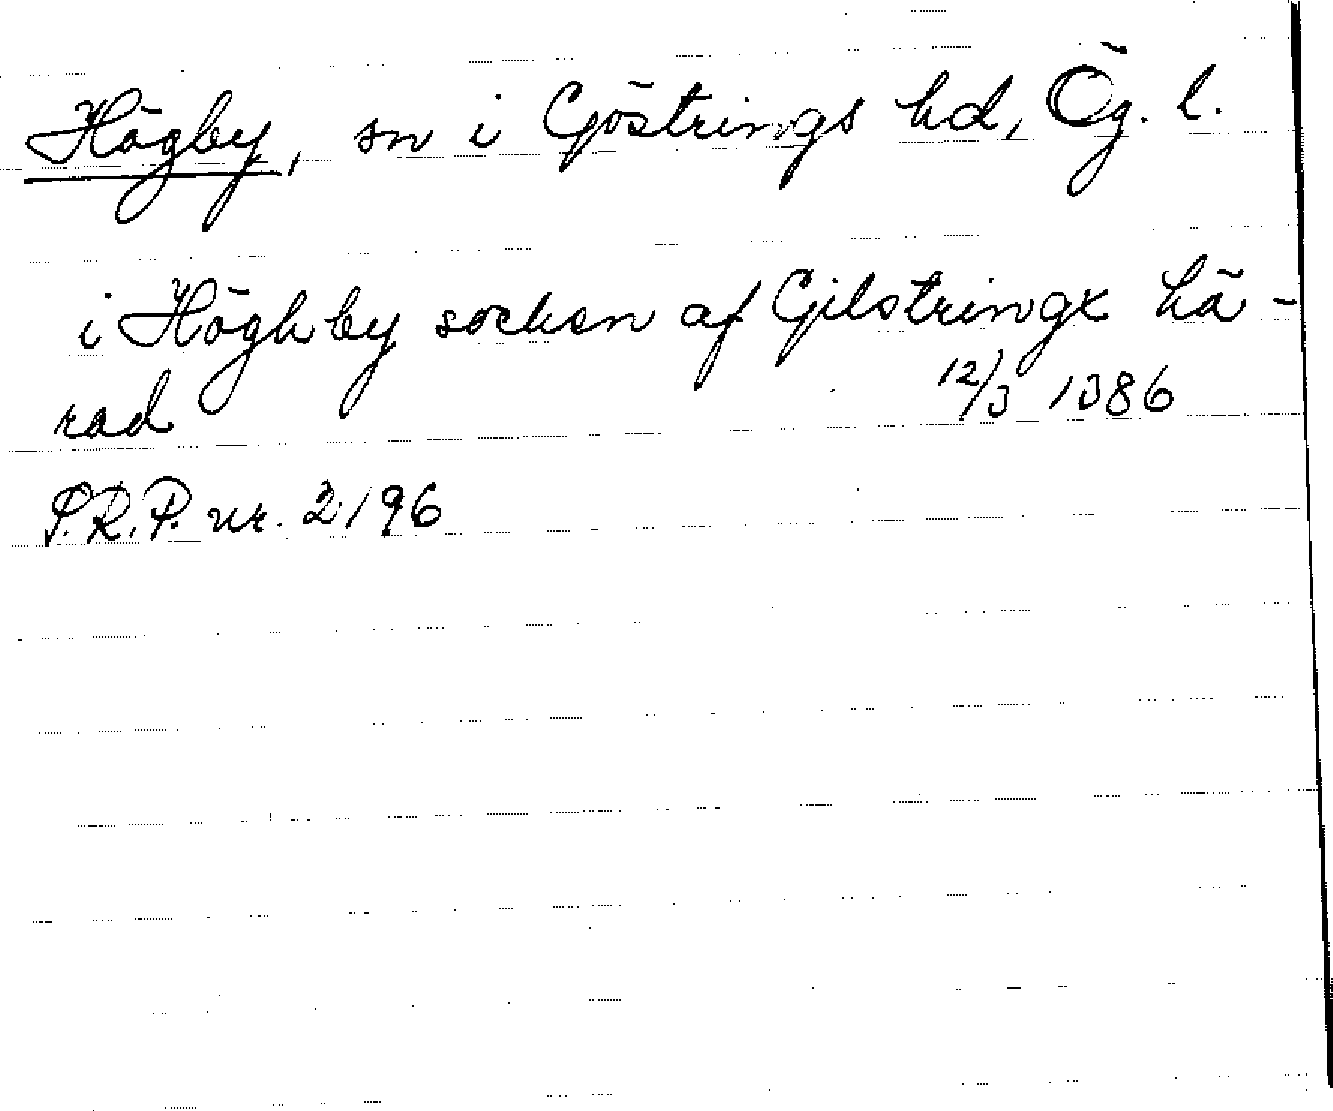 Högby, sn i Göstrings hd, Ög. l.
i Höghby socken af Gilstringx hä-
rad 12/3 1386
S.R.P. nr. 2196